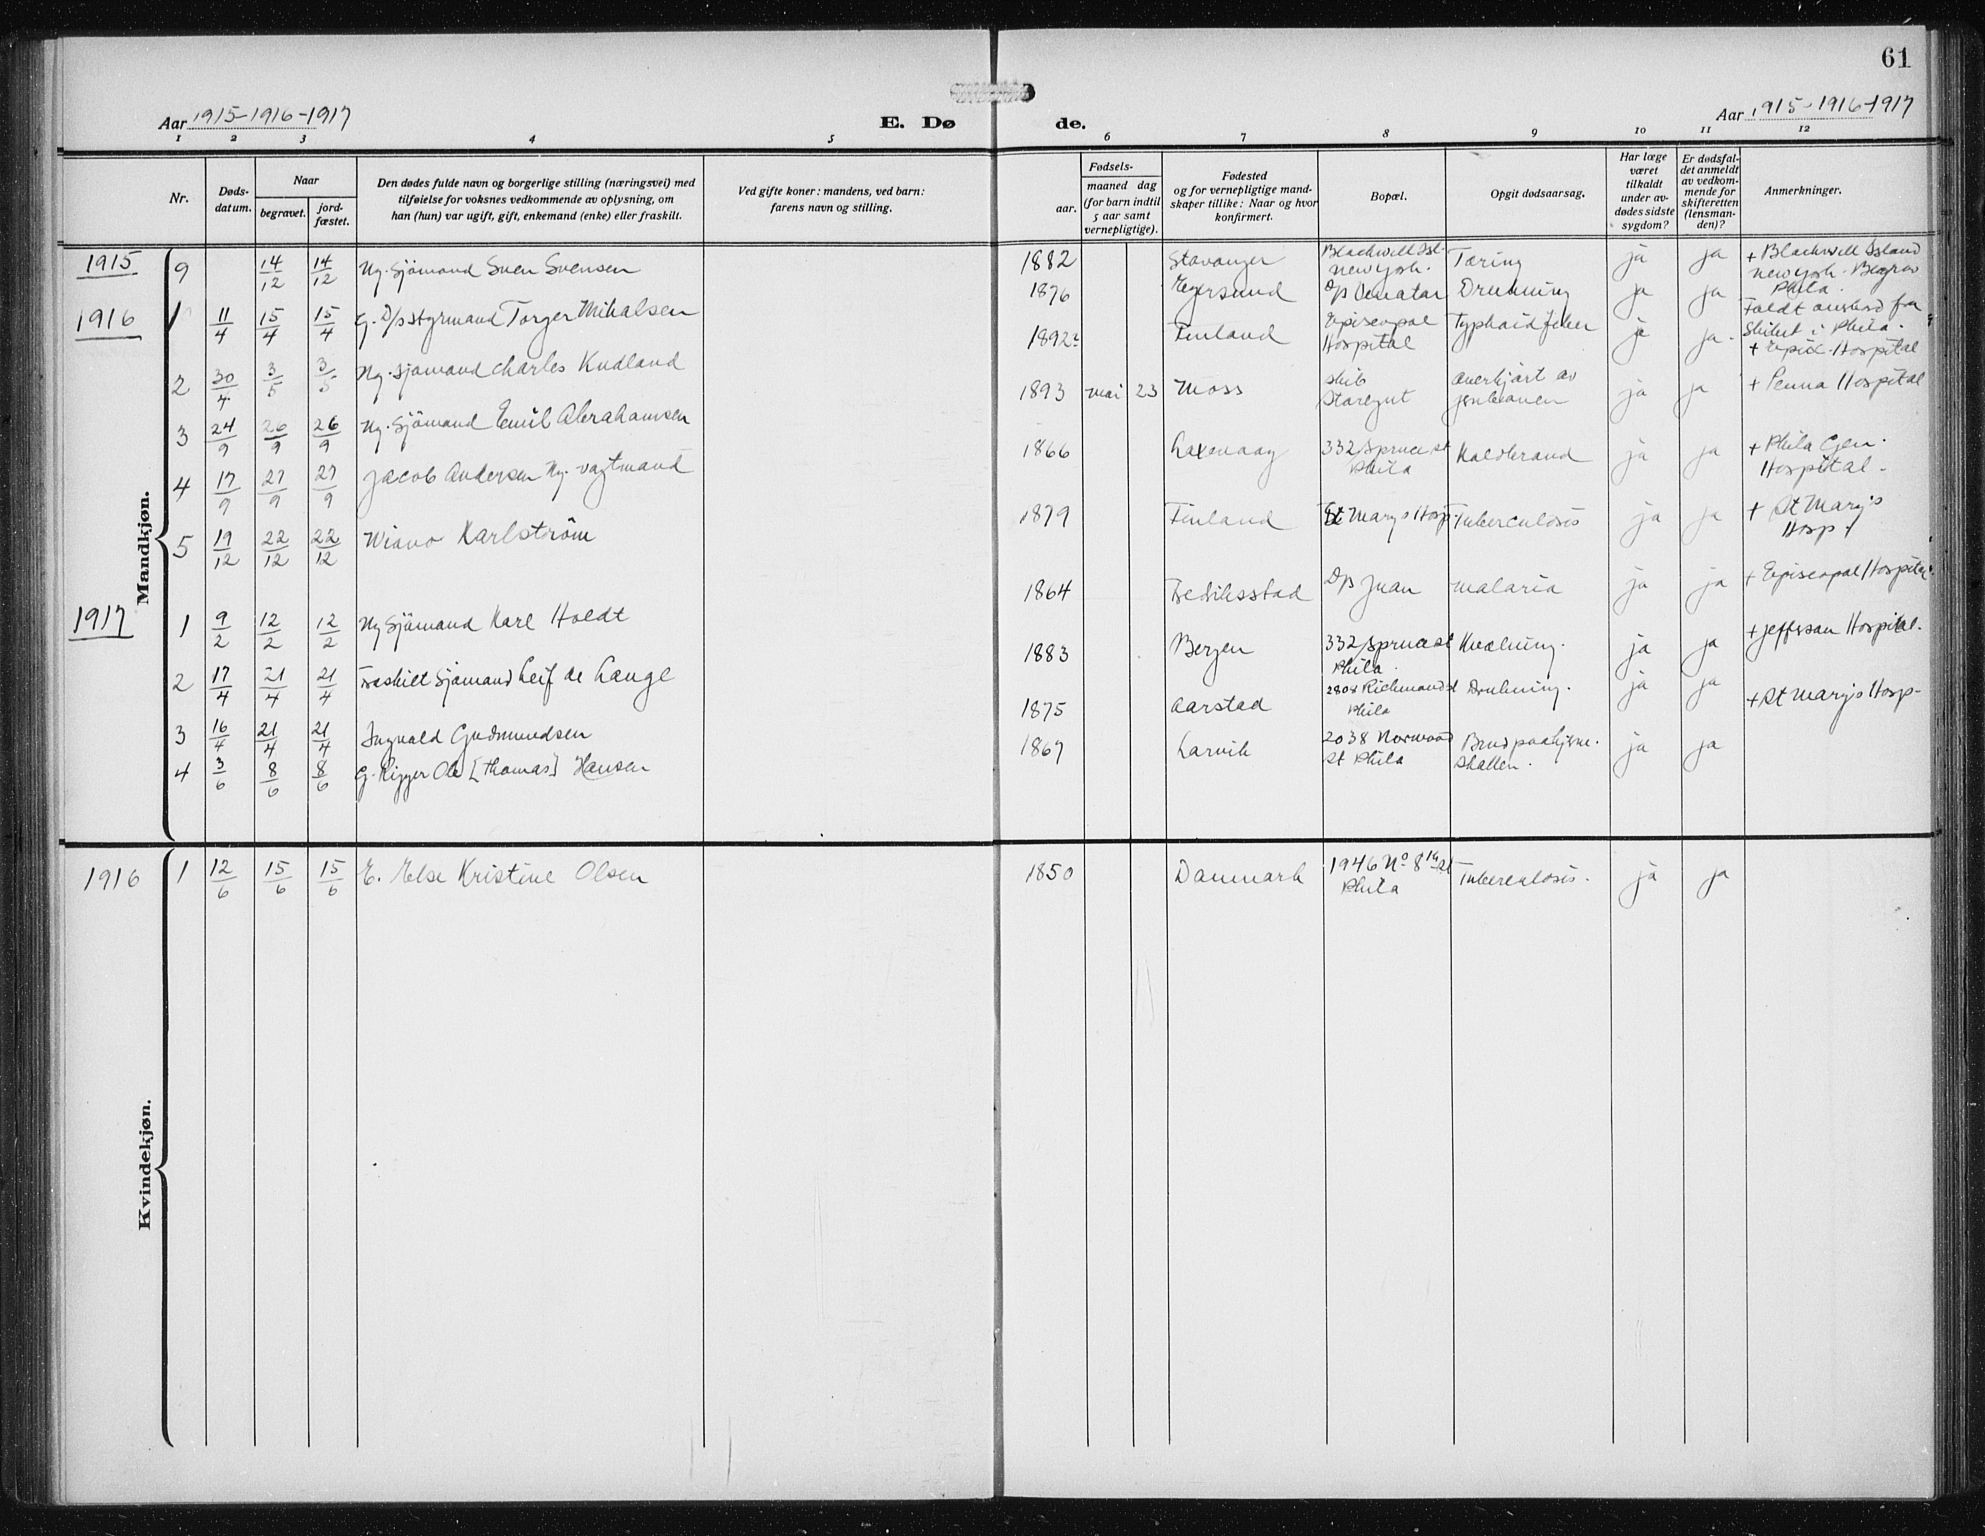 61
Aar 1915-1916-1917
E. Dø
de.
Aar 1915-1916-1917
1 2 3 4 5 6 7 8 9 10 11 12
Nr.
Døds-
datum.
Naar
begravet.
jord-
fæstet.
Den dødes fulde navn og borgerlige stilling (næringsvei) med
tilføielse for voksnes vedkommende av oplysning, om
han (hun) var ugift, gift, enkemand (enke) eller fraskilt.
Ved gifte koner: mandens, ved barn:
farens navn og stilling.
Fødsels-
aar.
maaned dag
(for barn indtil
5 aar samt
vernepligtige).
Fødested
og for vernepligtige mand-
skaper tillike: Naar og hvor
konfirmert.
Bopæl.
Opgit dødsaarsag.
Har læge
været
tilkaldt
under av-
dødes sidste
sygdom?
Er dødsfal-
det anmeldt
av vedkom-
mende for
skifteretten
(lensman-
den)?
Anmerkninger.
Mandkjøn.
1915 9 14/12 14/12 Ug. Sjömand Sven Svensen 1882 Stavanger Blackwell Isl. New York. Tæring ja ja + Blackwell Island New York. Begrav Phila.
1916 1 11/4 15/4 15/4 G. D/s styrmand Torger Mihalsen 1876 Egersund D/s Drukning ja ja Faldt ombord fra Skibet i Phila.
2 30/4 3/5 3/5 Ug. Sjömand Charles Kudland 1892 Finland Episcopal Hospital Typhoid feber ja ja. + Epis. Hospital
3 24/9 26/9 26/9 Ug. Sjömand Emil Abrahamsen 1893 mai 23 Moss Skib overkjört av jernbanen ja ja + Penna Hospital
4 17/9 27/9 27/9 Jacob Andersen Ug. vagtmand 1866 Laxevaag 332 Spruce st Phila Koldbrand ja ja + Phila Gen. Hospital.
5 19/12 22/12 22/12 Karlström 1879 Finland St Marys Hosp Tuberculosis ja ja + St Marys Hosp.
1917 1 9/2 12/2 12/2 Ug Sjömand Karl Holdt 1864 Fredriksstad D/s Juan malaria ja ja + Episcopal Hospital
2 17/4 21/4 21/4 Fraskilt Sjömand Leif de Lange 1883 Bergen 332 Spruce st Phila. Kvælning. ja ja + Jefferson Hospital.
3 16/4 21/4 21/4 Ingvald Gudmundsen 1875 Aarstad 2808 Richmond st Phila Drukning. ja ja + St Marys Hosp-
4 3/6 8/6 8/6 G. Rigger Ole [Thomas] Hansen 1867 Larvik 2038 Norwood St Phila Brud paa hjerneskallen. ja ja
Kvindekjøn.
1916 1 12/6 15/6 15/6 E. Else Kristine Olsen 1850 Danmark 1946 No 8th st Phila Tuberculosis. ja ja